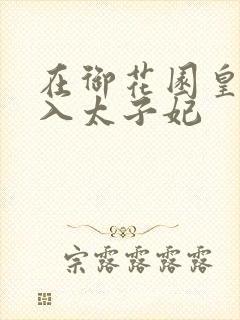 在御花园皇
入太子妃
宗露露露露